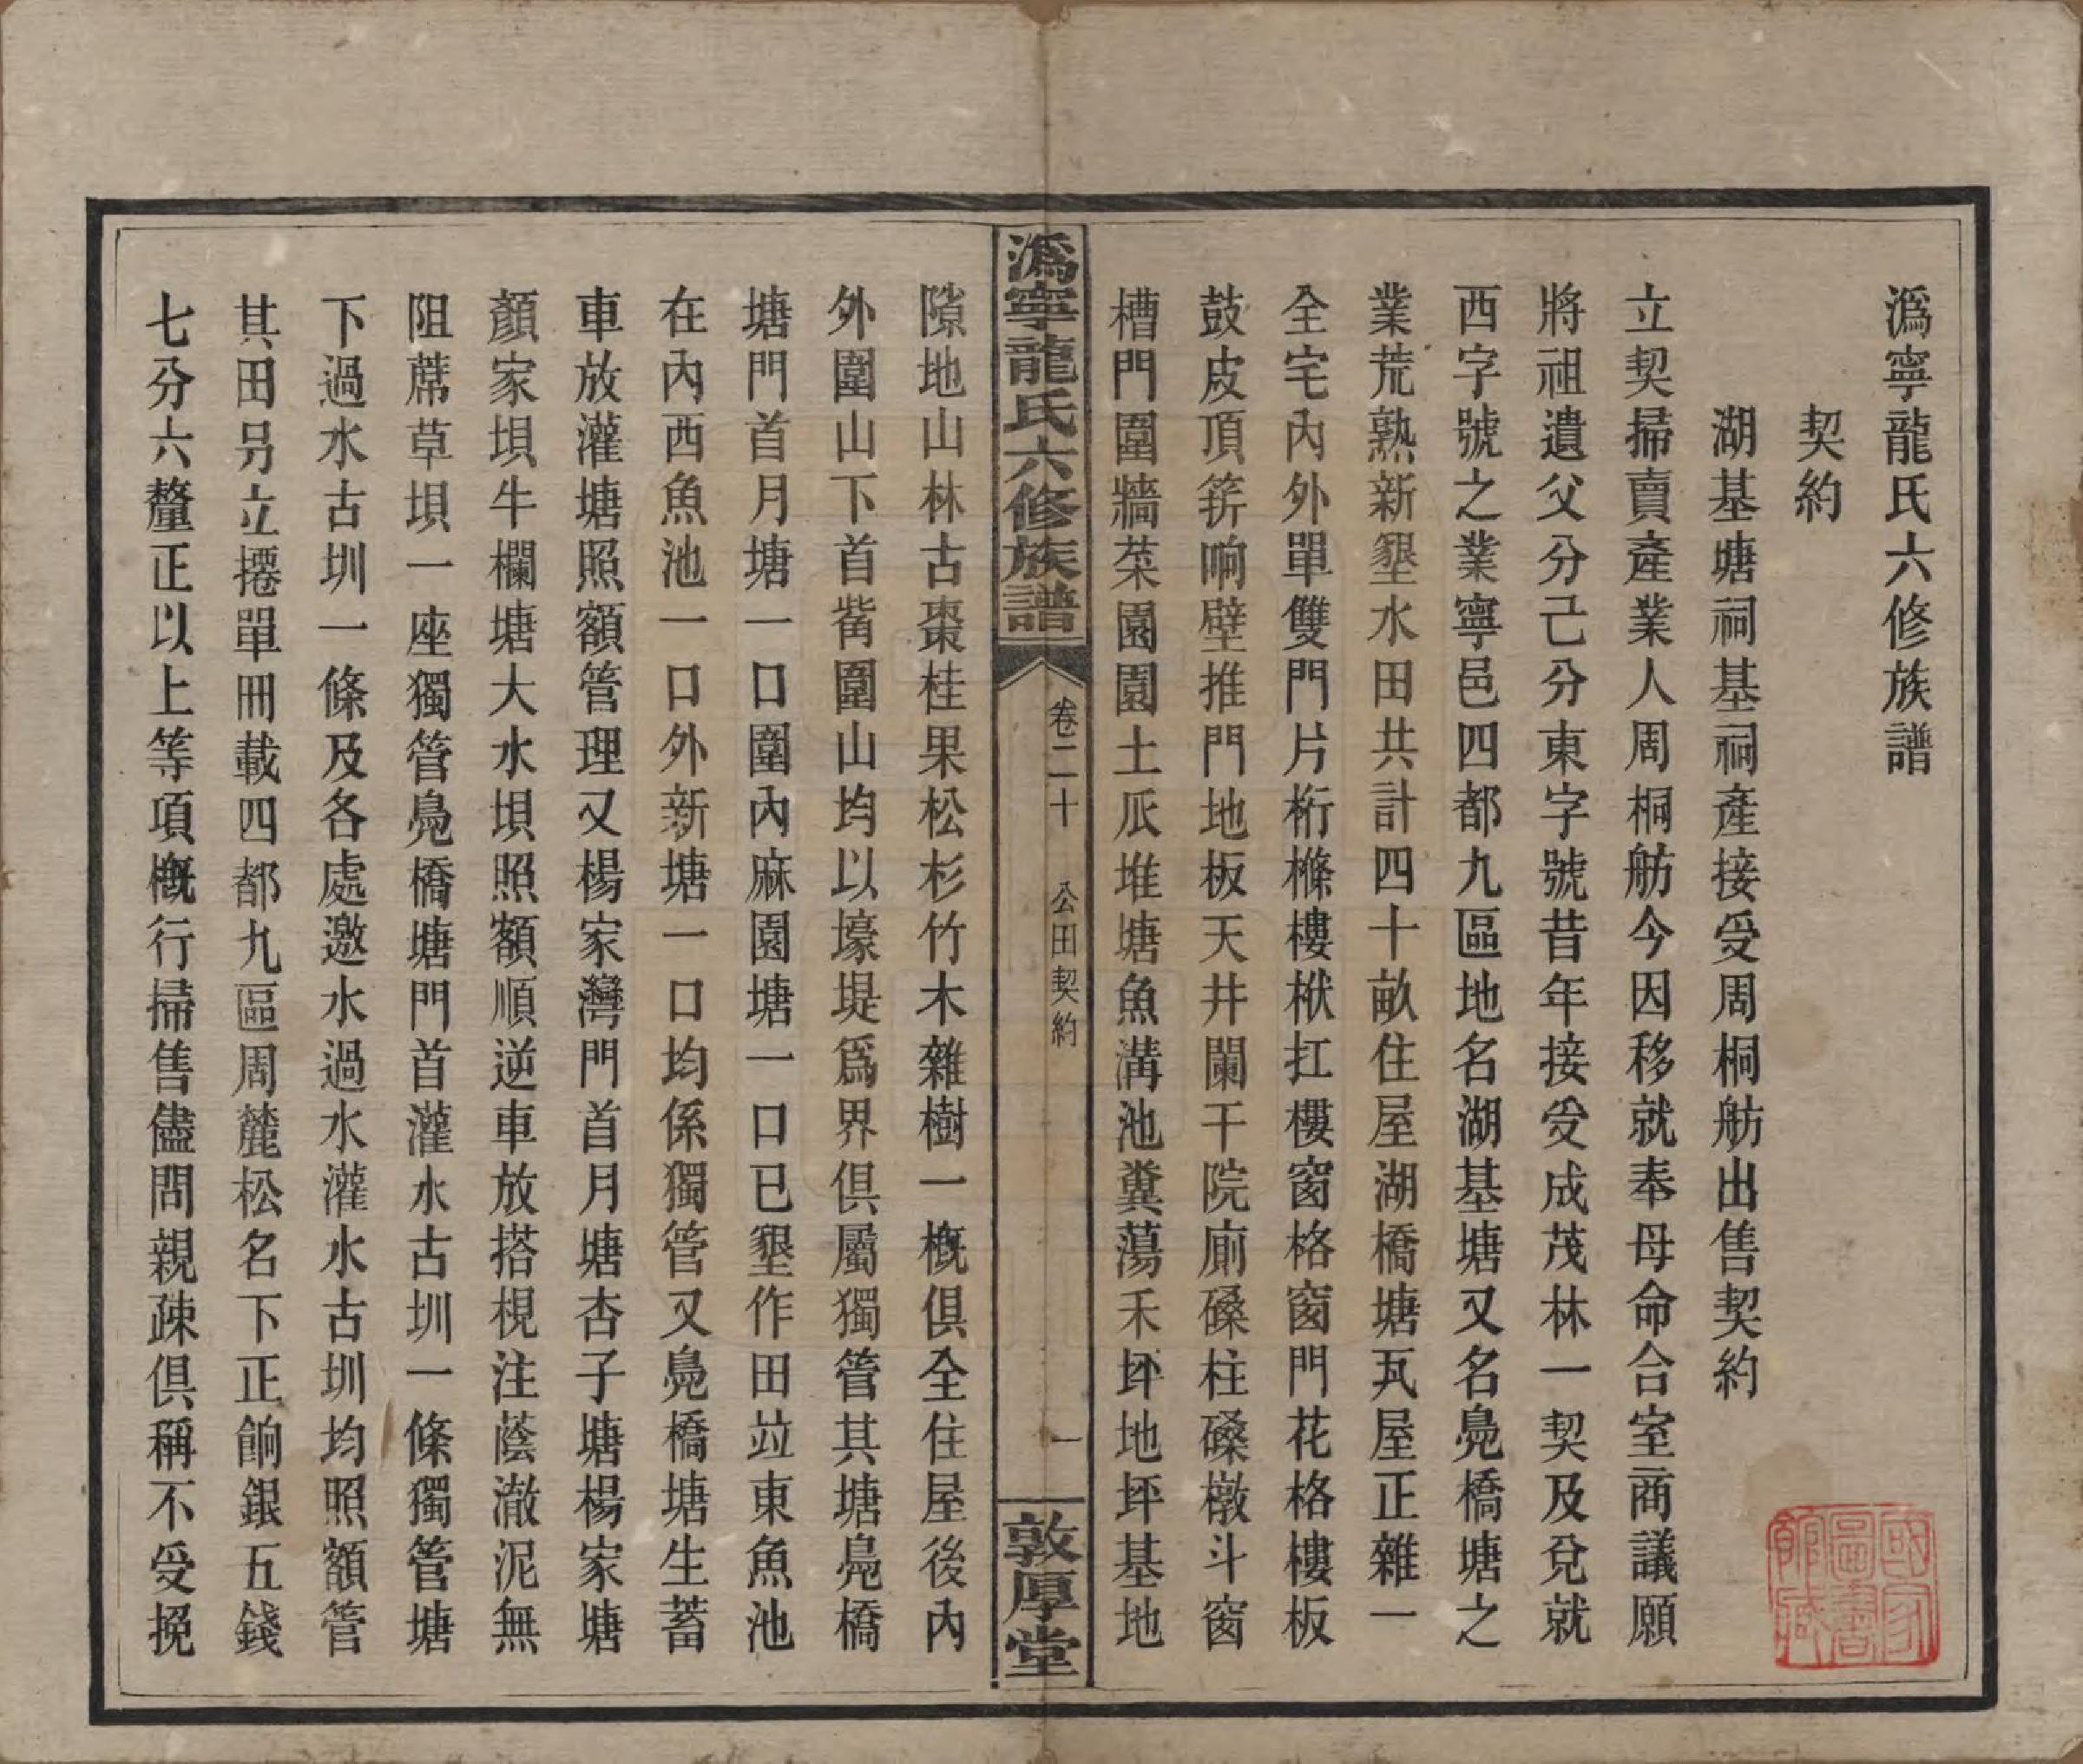 潙寧龍氏六修族譜
契約
湖基塘祠基祠產接受周桐舫出售契約
立契掃賣產業人周桐舫今因移就奉母命合室商議願
將祖遺父分己分東字號昔年接受成茂林一契及兌就
西字號之業寧邑四都九區地名湖基塘又名鳧橋塘之
業荒熟新墾水田共計四十畝住屋湖橋塘瓦屋正雜一
全宅內外單雙門片桁檁樓栿扛樓窗格窗門花格樓板
鼓皮頂筓响壁推門地板天井闌干院廁磉柱磉墩斗窗
槽門圍牆菜園園土瓜堆塘魚溝池糞蕩禾坪地坪基地
潙寧龍氏六修族譜
卷二十 公田契約
一
敦厚堂
隙地山林古棗桂果松杉竹木雜樹一概俱全住屋後內
外圍山下首觜圍山均以壕堤爲界俱屬獨管其塘鳧橋
塘門首月塘一口圍內麻園塘一口已墾作田竝東魚池
在內西魚池一口外新塘一口均係獨管又鳧橋塘生蓄
車放灌塘照額管理又楊家灣門首月塘杏子塘楊家塘
顏家垻牛欄塘大水垻照額順逆車放搭梘注蔭澈泥無
阻蓆草垻一座獨管鳧橋塘門首灌水古圳一條獨管塘
下過水古圳一條及各處邀水過水灌水古圳均照額管
其田另立摺單冊載四都九區周麓松名下正餉銀五錢
七分六釐正以上等項概行掃售儘問親疎俱稱不受挽
國家圖書館藏